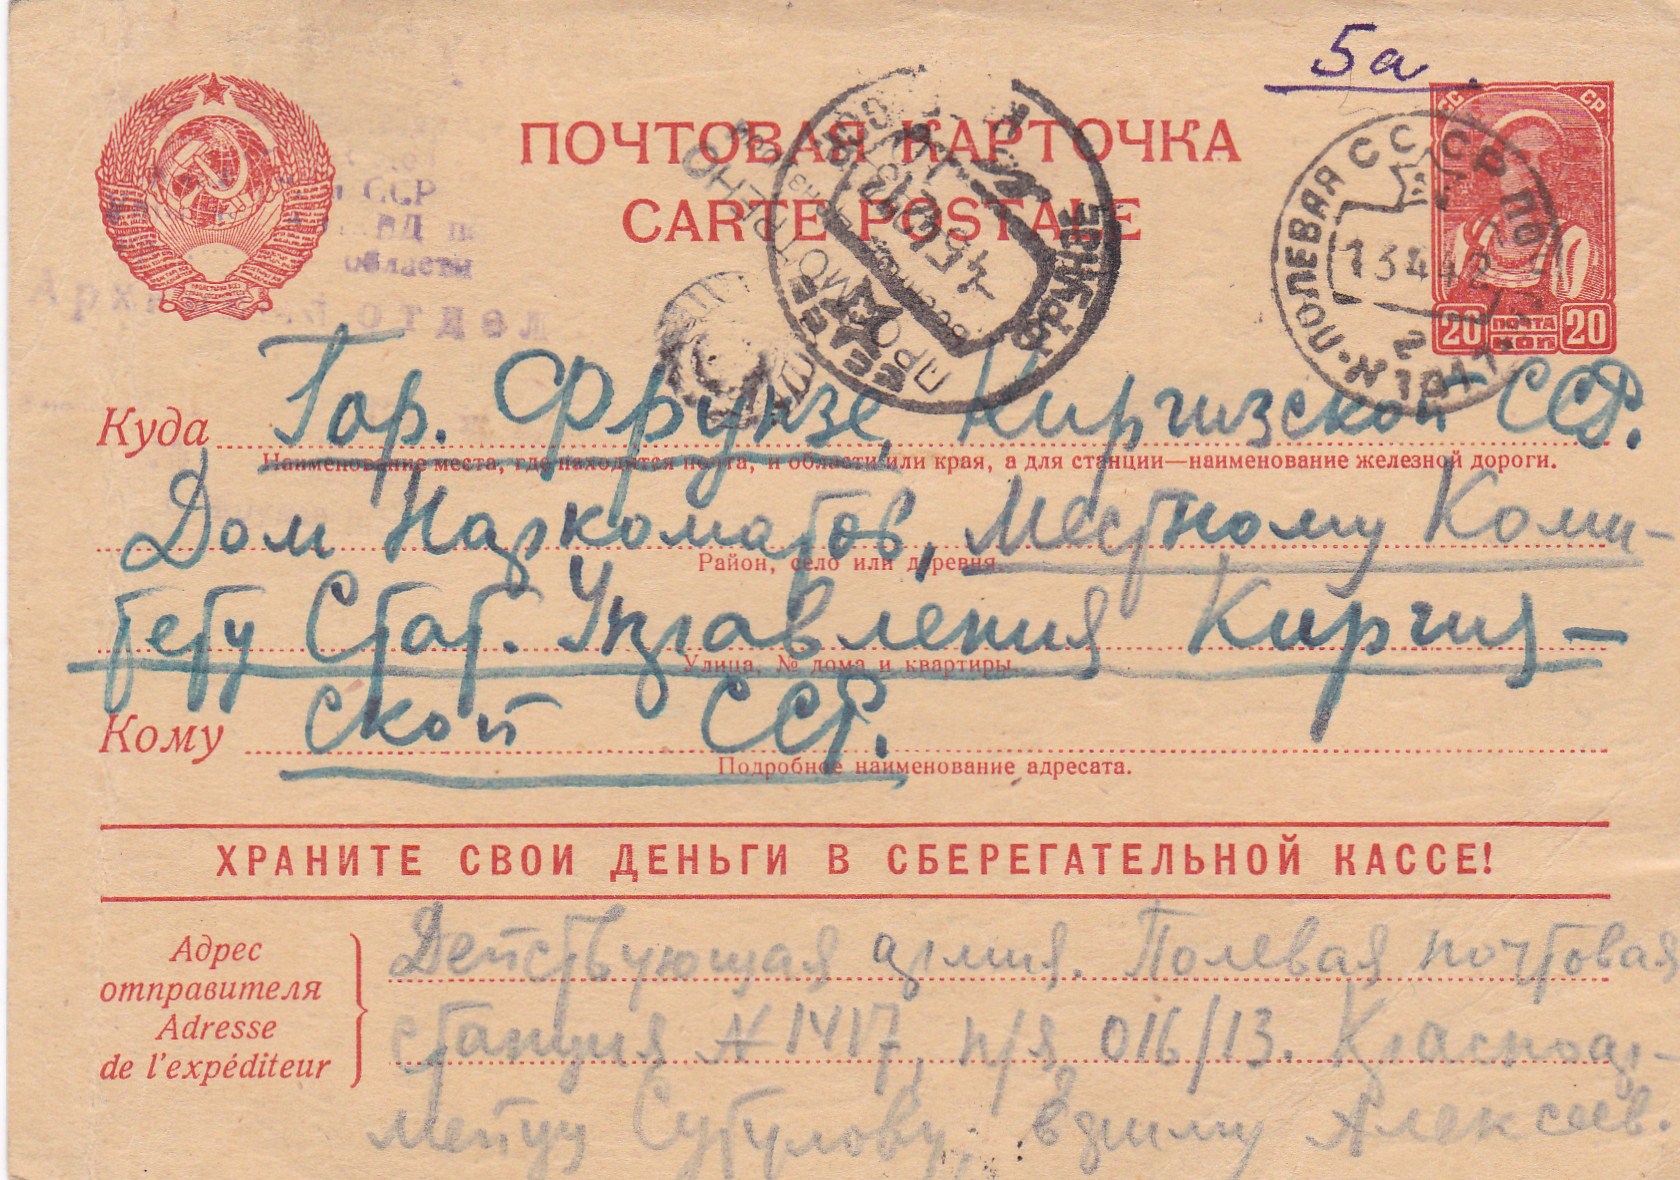 5а.
ПОЧТОВАЯ КАРТОЧКА
CARTE POSTALE
ССР
области
отдел
ФРУНЗЕ
4 5 42
ПОЛЕВАЯ
13 4 42
1417
СС СР
20 ПОЧТА 20
КОП
Куда Гор. Фрунзе, Киргизской ССР.
Наименование места, где находится почта, и области или края, а для станции—наименование железной дороги.
Дом Наркоматов, Местному Коми-
Район, село или деревня.
тету Стат. Управления Киргиз-
Улица, № дома и квартиры.
Кому ской ССР.
Подробное наименование адресата.
ХРАНИТЕ СВОИ ДЕНЬГИ В СБЕРЕГАТЕЛЬНОЙ КАССЕ!
Адрес
отправителя
Adresse
de l'expéditeur
Действующая армия. Полевая почтовая
станция № 1417, п/я 016/13. Красноар-
мейцу Алексеев.